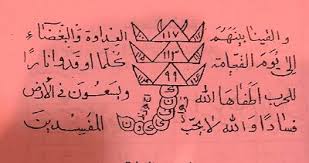 والقينا بينهم ١١٧ العداوة والبغضاء
إلى يوم القيامة ١١٣ كلما اوقدوا نارا
للحرب اطفاها الله ٩٩ ويسعون في الأرض
فسادا والله لا يحب المفسدين